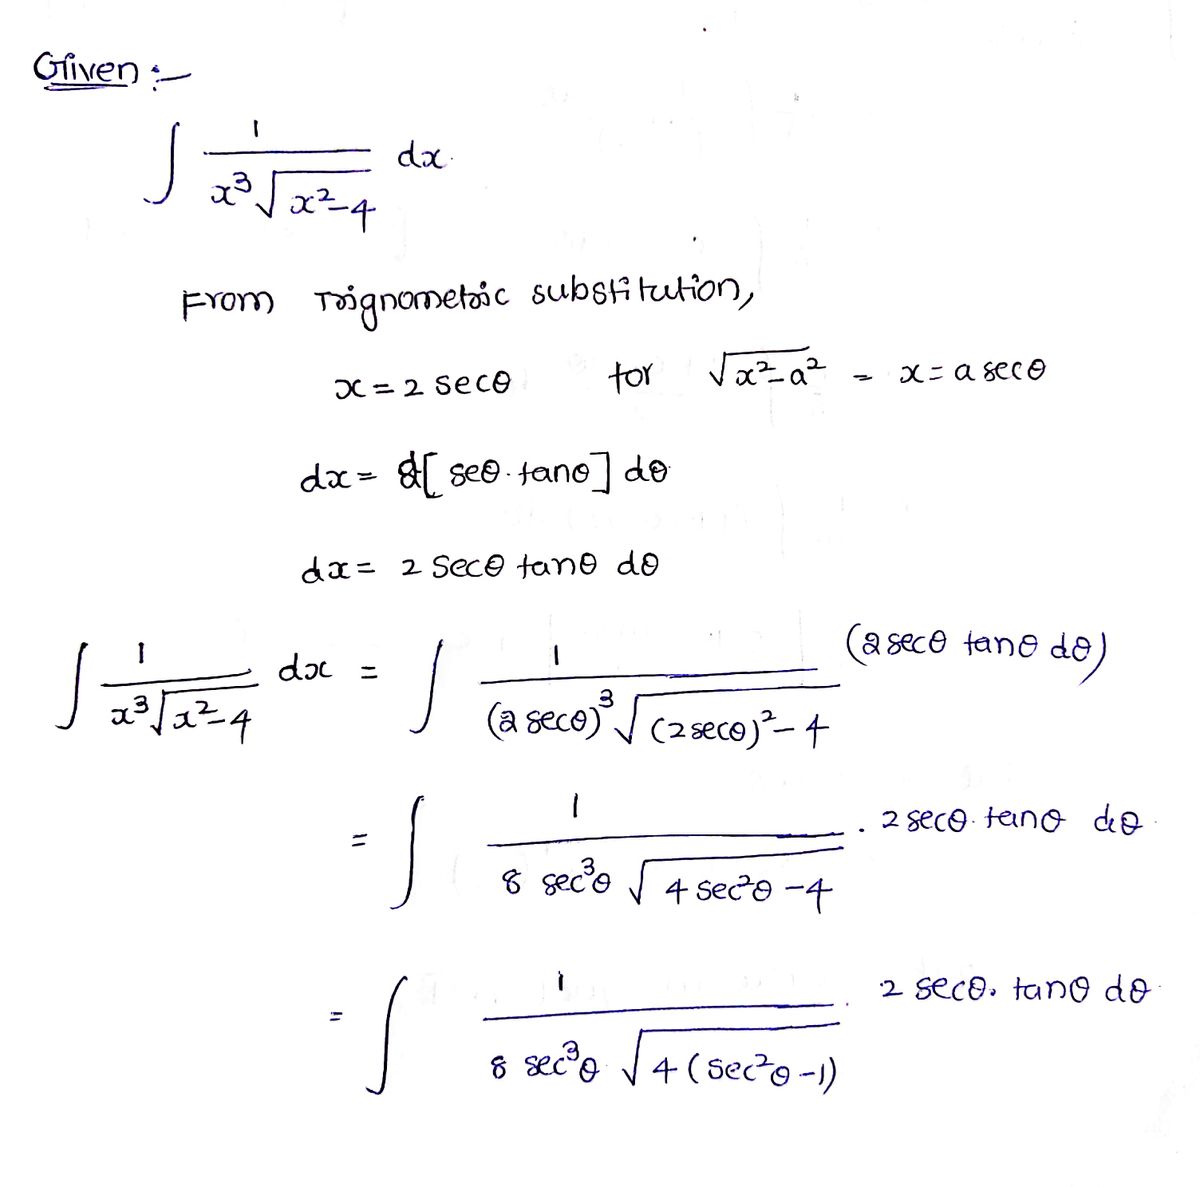 Given :-
∫ 1/(x³√(x²-4)) dx.
From Trignometric substitution,
x = 2 secθ for √(x²-a²) - x = a secθ
dx = 2[seθ·tanθ] dθ
dx = 2 secθ tanθ dθ
∫ 1/(x³√(x²-4)) dx = ∫ 1/((2 secθ)³√((2 secθ)²-4)) (2 secθ tanθ dθ)
= ∫ 1/(8 sec³θ √(4 sec²θ -4)) . 2 secθ. tanθ dθ.
= ∫ 1/(8 sec³θ √(4(sec²θ -1))) . 2 secθ. tanθ dθ.